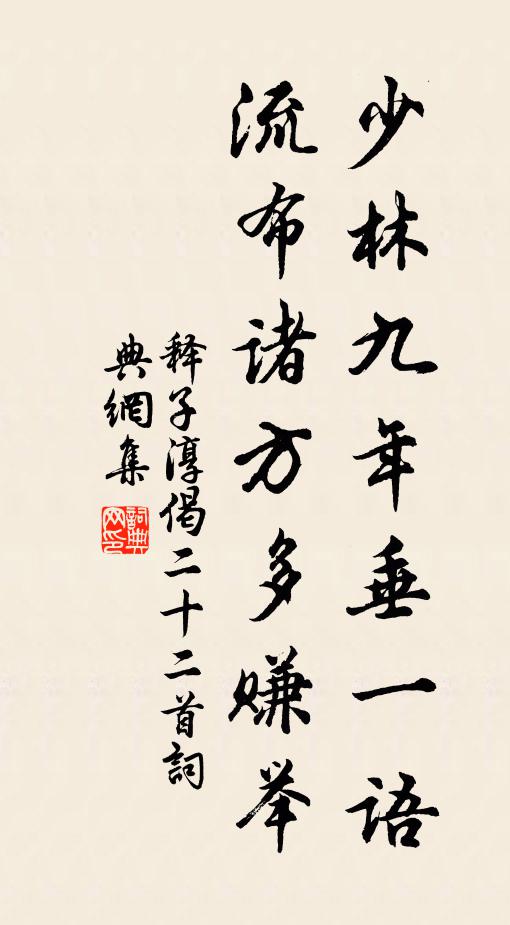 少林九年垂一语
流布诸方多赚举
释子淳偈二十二首詞
典網集
詞典网印